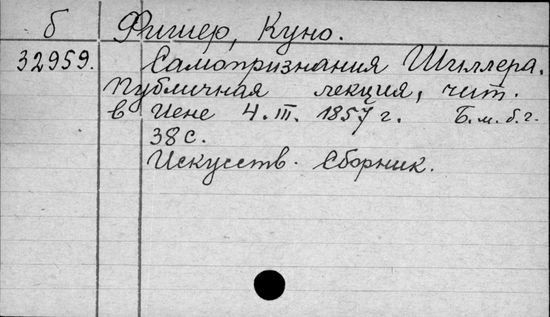 б Фишер, Куно.
32959. Самопризнания Шиллера.
Публичная лекция, чит.
в Иене 4.III. 1857 г. Б.м.б.г.
38 с.
Искусств. Сборник.